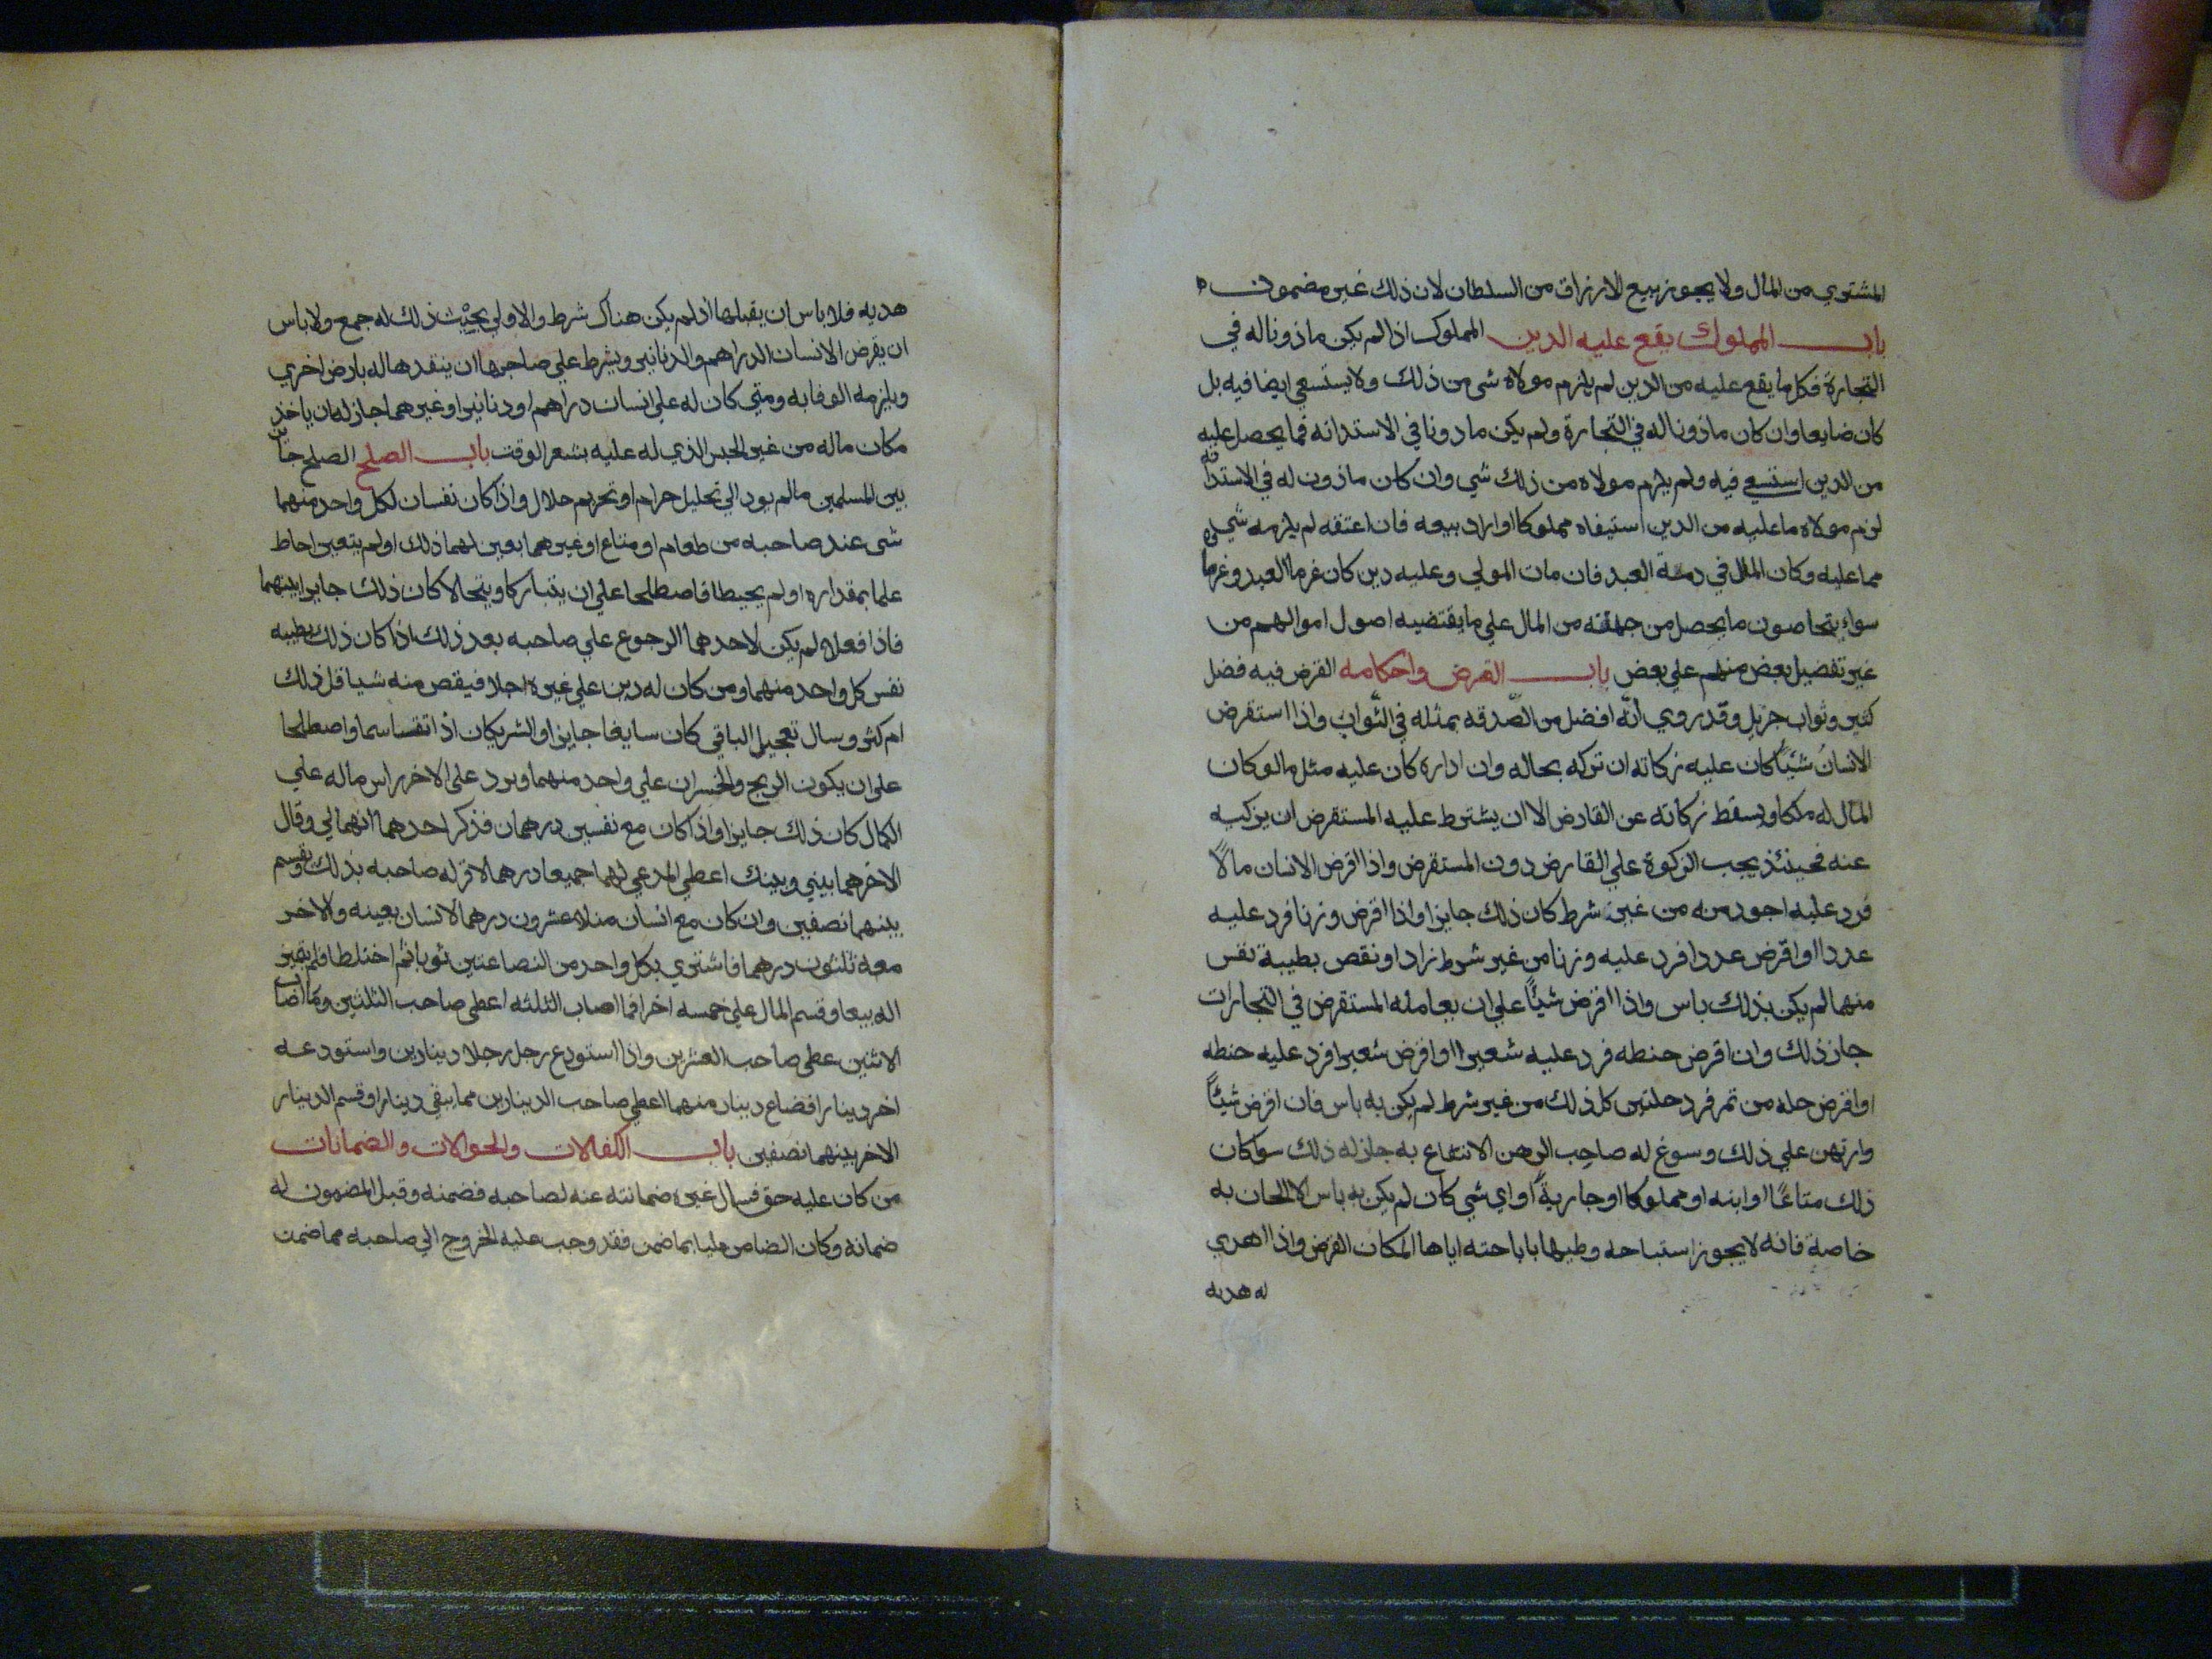 المشتري من المال ولا يجوز بيع الارزاق من السلطان لان ذلك غير مضمون
باب المملوك يقع عليه الدين المملوك اذا لم يكن ماذونا له في
التجارة فكل ما يقع عليه من الدين لم يلزم مولاه شي من ذلك ولا يستسعي ايضا فيه بل
كان ضايعا وان كان ماذونا له في التجارة ولم يكن ماذونا في الاستدانه فما يحصل عليه
من الدين استسعي فيه ولم يلزم مولاه من ذلك شي وان كان ماذون له في الاستدانه
لزم مولاه ما عليه من الدين استبقاه مملوكا او اراد بيعه فان اعتقه لم يلزمه شي
مما عليه وكان المال في ذمة العبد فان مات المولي وعليه دين كان غرما العبد وغرما
سواء يتحاصون ما يحصل من جملته من المال علي ما يقتضيه اصول اموالهم من
غير تفضيل بعض منهم علي بعض باب القرض واحكامه القرض فيه فضل
كثير وثواب جزيل وقد روي انّه افضل من الصّدقه بمثله في الثواب واذا استقرض
الانسان شيئاً كان عليه زكاته ان تركه بحاله وان اداره كان عليه مثل ما لو كان
المال له ملكا ويسقط زكاته عن القارض الا ان يشترط عليه المستقرض ان يزكيه
عنه فحينئذ يجب الزكوة علي القارض دون المستقرض واذا اقرض الانسان مالاً
فرد عليه اجود منه من غير شرط كان ذلك جايزا واذا اقرض وزنا فرد عليه
عددا او اقرض عددا فرد عليه وزنا من غير شرط زاد او نقص بطيبة نفس
منهما لم يكن بذلك باس واذا اقرض شيئاً علي ان يعامله المستقرض في التجارات
جاز ذلك وان اقرض حنطه فرد عليه شعيرا او اقرض شعيرا فرد عليه حنطه
او اقرض حله من تمر فرد حلتين كل ذلك من غير شرط لم يكن به باس فان اقرض شيئاً
وارتهن علي ذلك وسوغ له صاحب الرهن الانتفاع به جاز له ذلك سوا كان
ذلك متاعًا او انيه او مملوكا او جارية او اي شي كان لم يكن به باس الا الحان به
خاصة فانه لا يجوز استباحه وطيها باباحته اياها لمكان القرض واذا اهدي
له هديه
هديه فلا باس ان يقبلها اذ لم يكن هناك شرط والاولي بحيث ذلك له جمع ولا باس
ان يقرض الانسان الدراهم والدنانير ويشرط علي صاحبها ان ينقدها له بارض اخري
ويلزمه الوفا به ومتي كان له علي انسان دراهم او دنانير او غيرهما جاز له ان ياخذ
مكان ماله من غير الجنس الذي له عليه بسعر الوقت باب الصلح الصلح جائز
بين المسلمين ما لم يود الي تحليل حرام او تحريم حلال واذا كان نفسان لكل واحد منهما
شي عند صاحبه من طعام او متاع او غيرهما بعين لهما ذلك او لم يتعين احاط
علما بمقداره او لم يحيطا فاصطلحا علي ان يتباركا ويتحالا كان ذلك جايزا بينهما
فاذا فعلاه لم يكن لاحدهما الرجوع علي صاحبه بعد ذلك اذا كان ذلك بطيبه
نفس كل واحد منهما ومن كان له دين علي غيره اجلا فيقص منه شيا قل ذلك
ام كثر وسال تعجيل الباقي كان سايغا جايزا والشريكان اذ اتقساسما واصطلحا
علي ان يكون الربح والخسران علي واحد منهما ويرد علي الاخر راس ماله علي
الكمال كان ذلك جايزا واذا كان مع نفسين درهمان فذكر احدهما انهما لي وقال
الاخر هما بيني وبينك اعطي المدعي لهما جميعا درهما لاقرله صاحبه بذلك وقسم
بينهما نصفين وان كان مع انسان مثلا عشرون درهما لانسان بعينه والاخر
معه ثلثون درهما فاشتري بكل واحد من البضاعتين ثوبا ثم اختلطا فلم يتميز
اله بيعا وقسم المال علي خمسه اخرا فما اصاب الثلثه اعطي صاحب الثلثين وما اصاب
الاثنين عطي صاحب العشرين واذا استودع رجل رجلا دينارين واستودعه
اخر دينارا فضاع دينار منهما اعطي صاحب الدينارين مما يبقي دينارا وقسم الدينار
الاخر بينهما نصفين باب الكفالات والحوالات والضمانات
من كان عليه حق فسال غيره ضمانته عنه لصاحبه فضمنه وقبل المضمون له
ضمانه وكان الضامن مليا بما ضمن فقد وجب عليه الخروج الي صاحبه مما ضمن